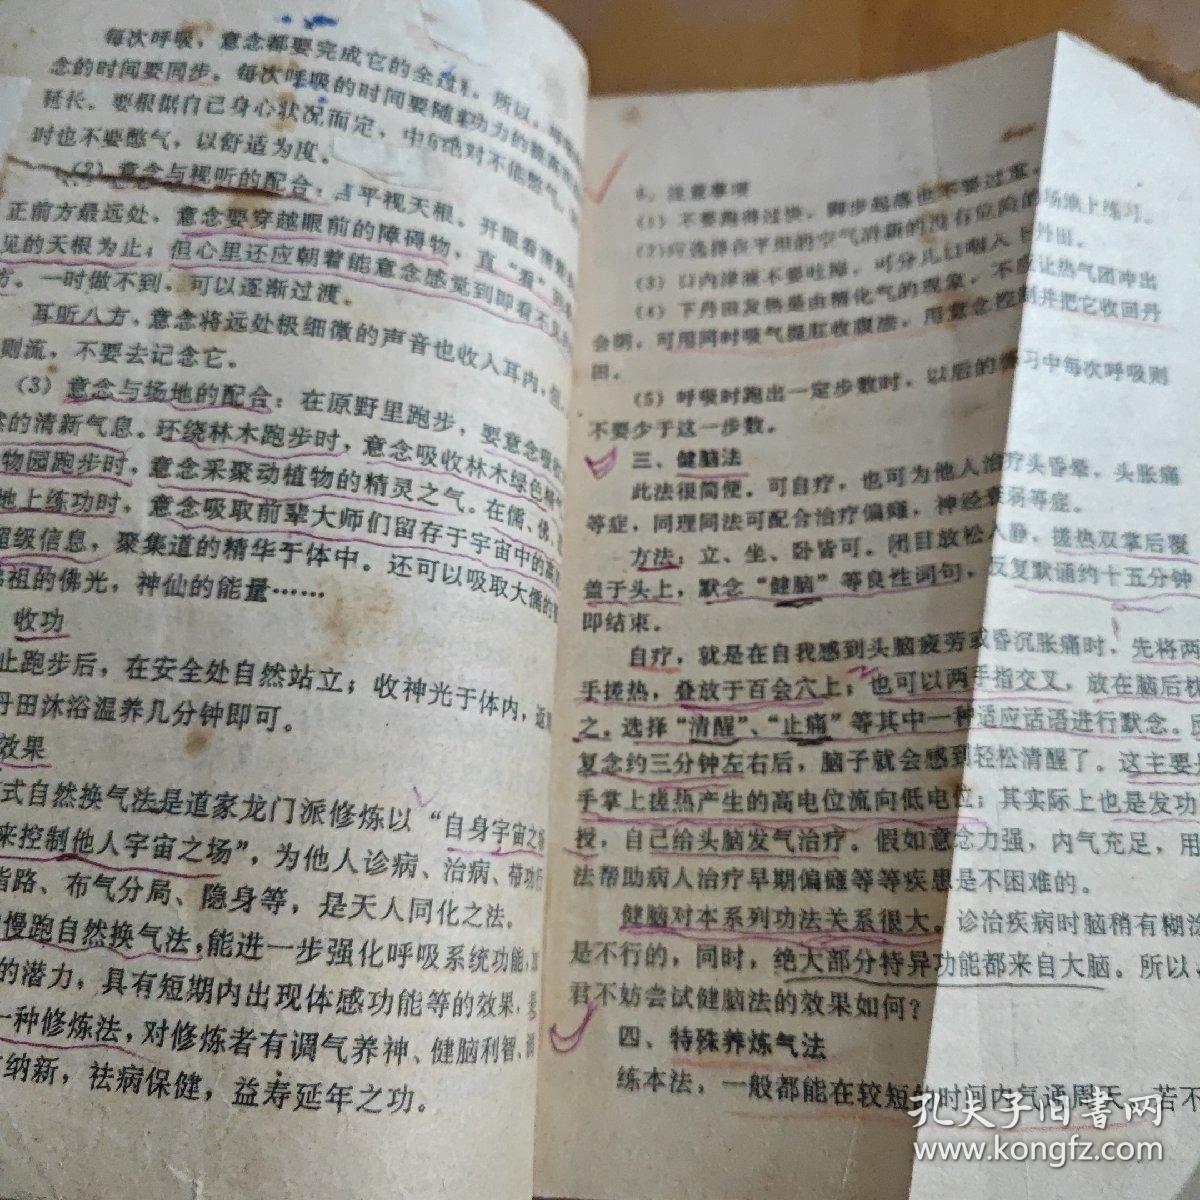 每次呼吸，意念都要完成它的全过
念的时间要同步。每次呼吸的时间要随
延长。要根据自己身心状况而定，中
时也不要憋气，以舒适为度。
（2）意念与视听的配合：
平视天根。开眼看
正前方最远处，意念要穿越眼前的障碍物，直“看”
见的天根为止；但心里还应朝着能意念感觉到即看不见
方。一时做不到，可以逐渐过渡。
耳听八方，意念将远处极细微的声音也收入耳内，
则流，不要去记念它。
（3）意念与场地的配合：在原野里跑步，要意念
的清新气息。环绕林木跑步时，意念吸收林木绿色
物园跑步时，意念采聚动植物的精灵之气。在儒、佛、
地上练功时，意念吸取前辈大师们留存于宇宙中的高
超级信息，聚集道的精华于体中。还可以吸取大儒的
祖的佛光，神仙的能量……
收功
止跑步后，在安全处自然站立；收神光于体内，返
丹田沐浴温养几分钟即可。
效果
式自然换气法是道家龙门派修炼以“自身宇宙之场
来控制他人宇宙之场”，为他人诊病、治病、带功行
指路、布气分局、隐身等，是天人同化之法。
慢跑自然换气法，能进一步强化呼吸系统功能，加
的潜力，具有短期内出现体感功能等的效果，
一种修炼法，对修炼者有调气养神、健脑利智、
纳新，祛病保健，益寿延年之功。
6、注意事项
（1）不要跑得过快，脚步起落也不要过重。
（2）应选择在平坦的空气清新的没有危险的场地上练习。
（3）口内津液不要吐掉，可分几口咽入下丹田。
（4）下丹田发热是由精化气的现象，不应让热气团冲出
会阴，可用同时吸气提肛收腹法，用意念控制并把它收回丹
田。
（5）呼吸时跑出一定步数时，以后的练习中每次呼吸则
不要少于这一步数。
三、健脑法
此法很简便，可自疗，也可为他人治疗头昏晕、头胀痛
等症，同理同法可配合治疗偏瘫，神经衰弱等症。
方法：立、坐、卧皆可。闭目放松入静，搓热双掌后覆
盖于头上，默念“健脑”等良性词句，反复默诵约十五分钟
即结束。
自疗，就是在自我感到头脑疲劳或昏沉胀痛时，先将两
手搓热，叠放于百会穴上；也可以两手指交叉，放在脑后枕
之。选择“清醒”、“止痛”等其中一种适应话语进行默念。
复念约三分钟左右后，脑子就会感到轻松清醒了。这主要是
手掌上搓热产生的高电位流向低电位；其实际上也是发功
授，自己给头脑发气治疗。假如意念力强，内气充足，用
法帮助病人治疗早期偏瘫等等疾患是不困难的。
健脑对本系列功法关系很大。诊治疾病时脑稍有糊涂
是不行的，同时，绝大部分特异功能都来自大脑。所以，
君不妨尝试健脑法的效果如何？
四、特殊养炼气法
练本法，一般都能在较短的时间内气通周天。若不
孔夫子旧书网
www.kongfz.com